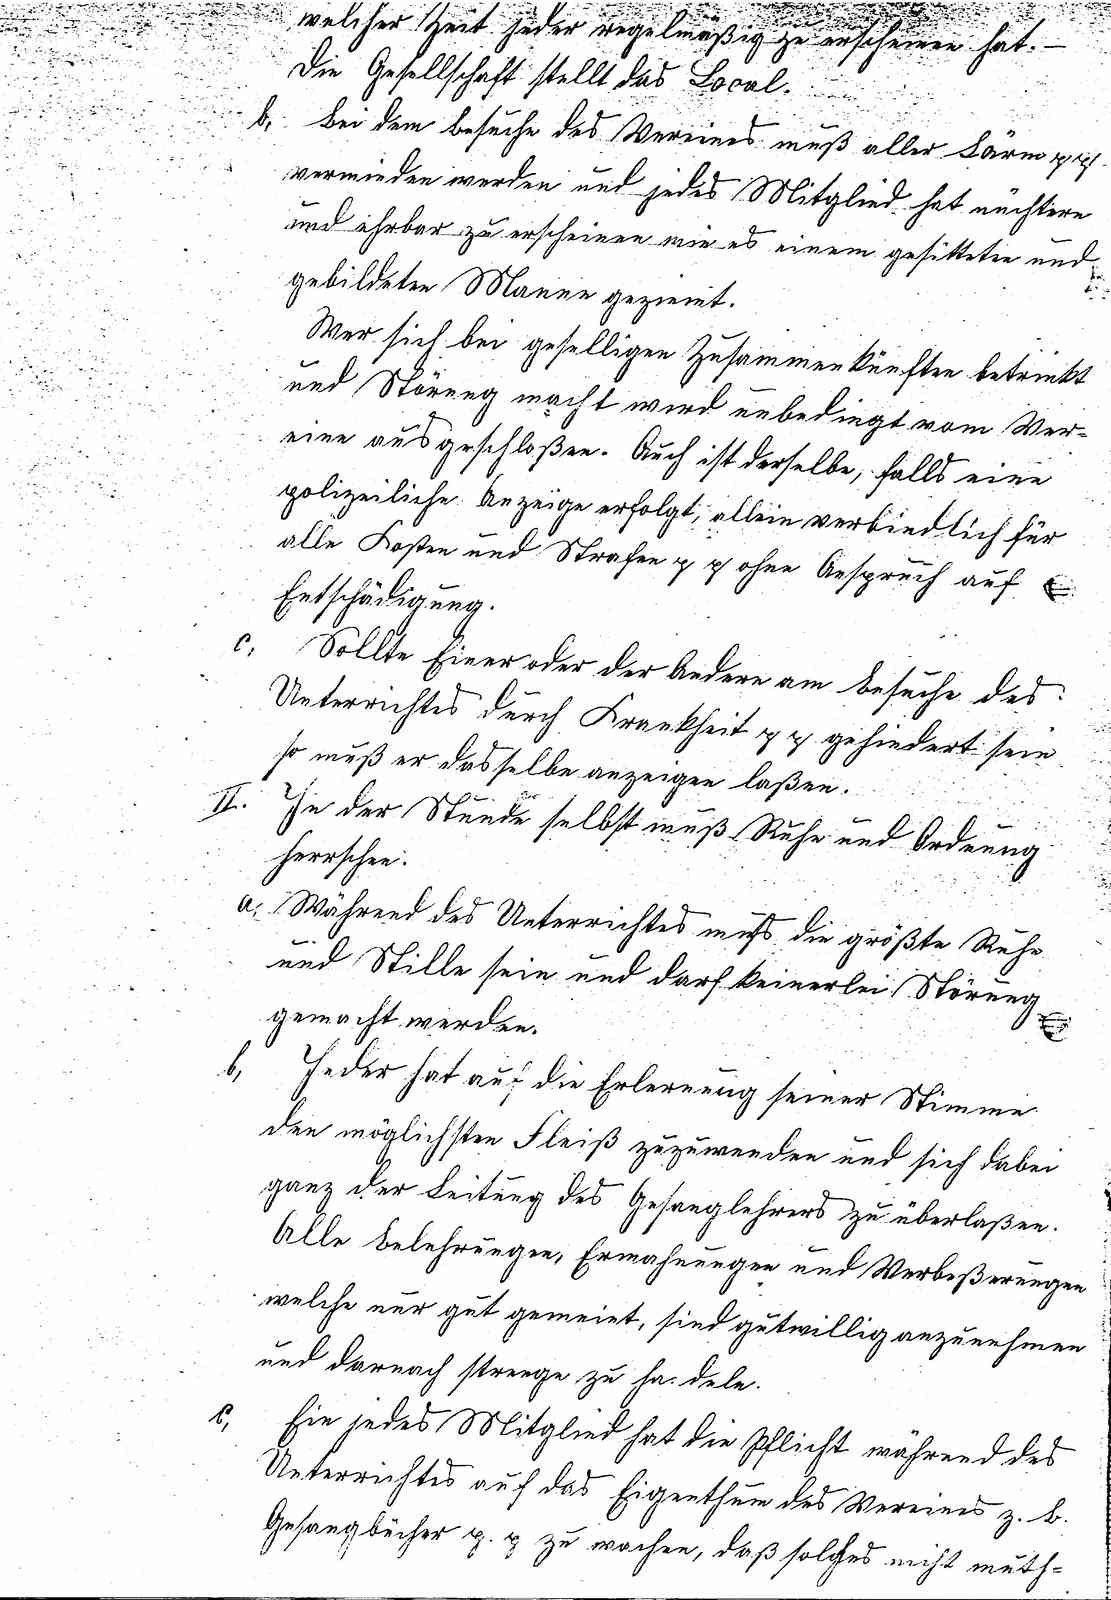 welcher Zeit jeder regelmäßig zu erscheinen hat. –
Die Gesellschaft stellt das Local.
b, Bei dem Besuche des Vereines muß aller Lärm pp.
vermieden werden und jedes Mitglied hat nüchtern
und ehrbar zu erscheinen wie es einem gesitteten und
gebildeten Manne geziemt.
Wer sich bei geselligen Zusammenkünften betrinkt
und Störung macht wird unbedingt vom Ver-
eine ausgeschloßen. Auch ist derselbe, falls eine
polizeiliche Anzeige erfolgt, allein verbindlich für
alle Kosten und Strafen p p ohne Anspruch auf
Entschädigung.
c, Sollte Einer oder der Andere am Besuche des
Unterrichtes durch Krankheit p p gehindert sein
so muß er dasselbe anzeigen laßen.
II. In der Stunde selbst muß Ruhe und Ordnung
herrschen.
a, Während des Unterrichtes muß die größte Ruhe
und Stille sein und darf keinerlei Störung
gemacht werden.
b, Jeder hat auf die Erlernung seiner Stimme
den möglichsten Fleiß zuzuwenden und sich dabei
ganz der Leitung des Gesanglehrers zu überlaßen.
Alle Belehrungen, Ermahnungen und Verbeßerungen
welche nur gut gemeint, sind gutwillig anzunehmen
und darnach strenge zu ha deln.
c, Ein jedes Mitglied hat die Pflicht während des
Unterrichtes auf das Eigenthum des Vereines z. B.
Gesangbücher p. p zu wachen, daß solches nicht muth-